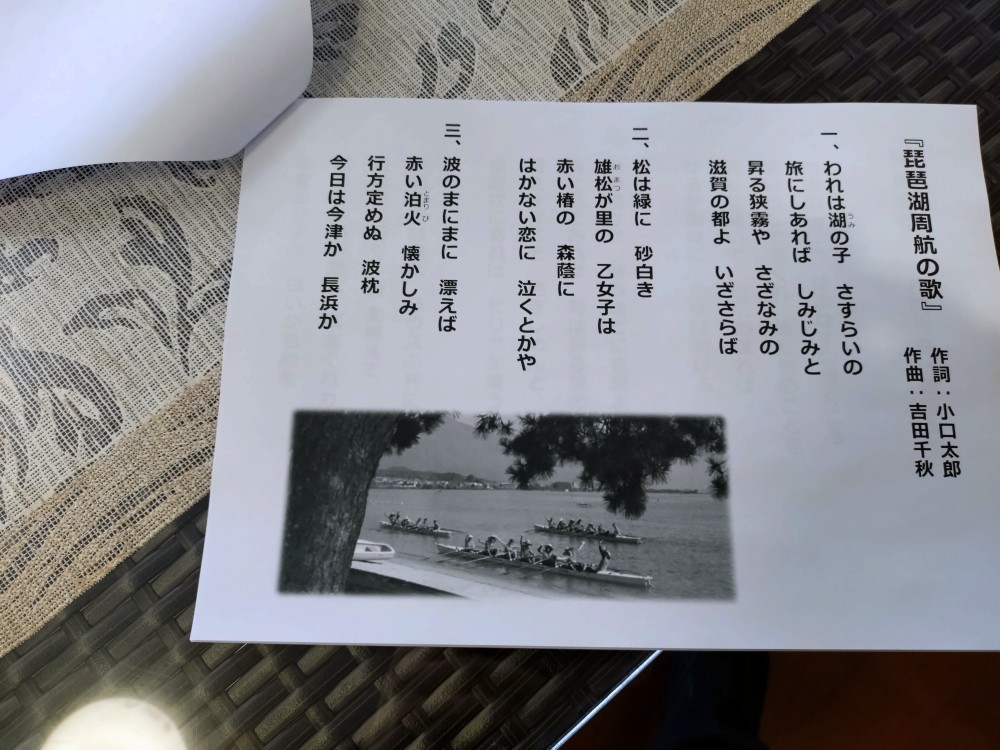 『琵琶湖周航の歌』
作詞：小口太郎
作曲：吉田千秋
一、われは湖の子　さすらいの
うみ
旅にしあれば　しみじみと
昇る狭霧や　さざなみの
滋賀の都よ　いざさらば
二、松は緑に　砂白き
雄松が里の　乙女子は
おまつ
赤い椿の　森蔭に
はかない恋に　泣くとかや
三、波のまにまに　漂えば
赤い泊火　懐かしみ
とまりび
行方定めぬ　波枕
今日は今津か　長浜か